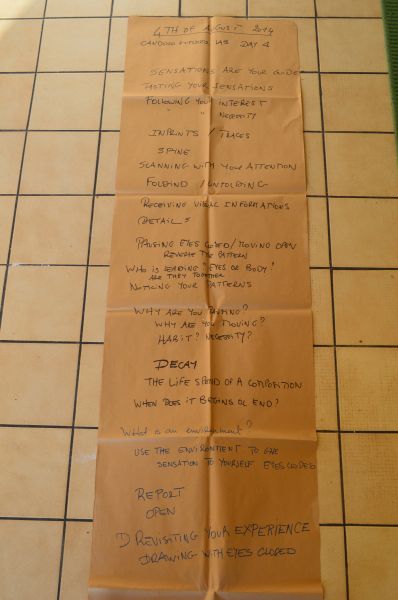 4TH OF AUGUST 2014
LAB DAY 4
SENSATIONS ARE YOUR GUIDE
TASTING YOUR SENSATIONS
FOLLOWING YOUR INTEREST
" " NECESSITY
INPRINTS / TRACES
SPINE
SCANNING WITH YOUR ATTENTION
FOLDING / UNFOLDING
RECEIVING VISUAL INFORMATIONS
DETAILS
PAUSING EYES CLOSED / MOVING OPEN
REVERSE THE PATTERN
WHO IS LEADING "EYES OR BODY"
ARE THEY TOGETHER
NOTICING YOUR PATTERNS
WHY ARE YOU PAUSING?
WHY ARE YOU MOVING?
HABIT? NECESSITY?
DECAY
THE LIFE SPEND OF A COMPOSITION
WHEN DOES IT BEGINS OR END?
What is an environment?
USE THE ENVIRONTENT TO GIVE
SENSATION TO YOURSELF EYES CLOSED
REPORT
OPEN
D REVISITING YOUR EXPERIENCE
DRAWING WITH EYES CLOSED